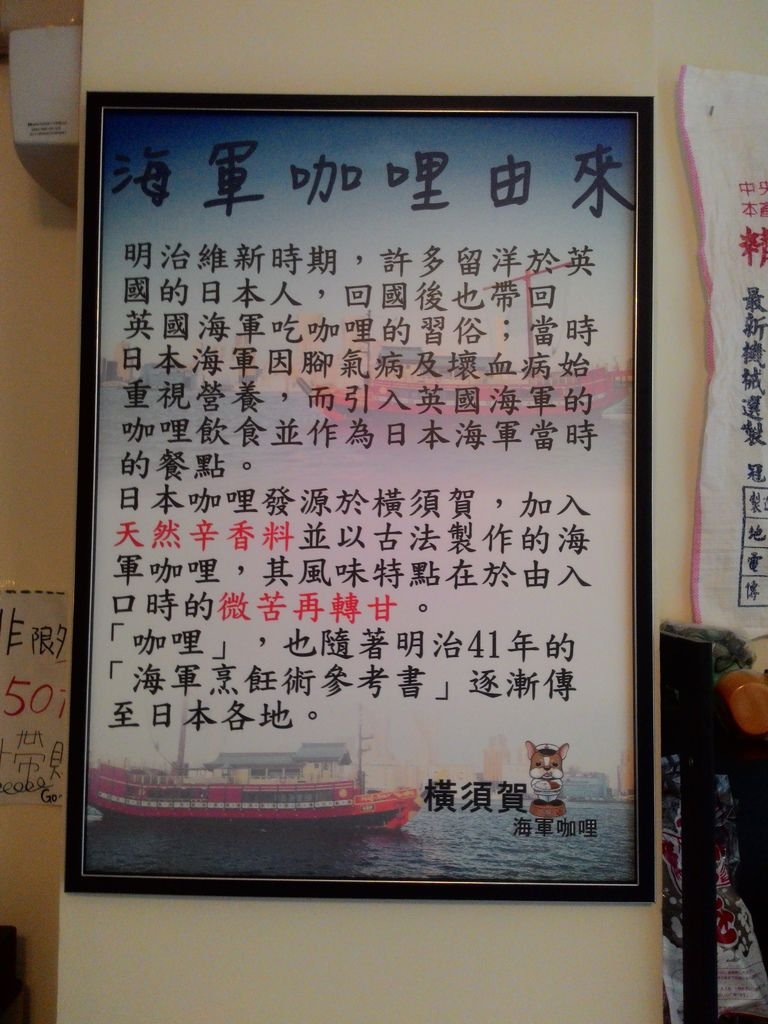 海軍咖哩由來
明治維新時期，許多留洋於英
國的日本人，回國後也帶回
英國海軍吃咖哩的習俗；當時
日本海軍因腳氣病及壞血病始
重視營養，而引入英國海軍的
咖哩飲食並作為日本海軍當時
的餐點。
日本咖哩發源於橫須賀，加入
天然辛香料並以古法製作的海
軍咖哩，其風味特點在於由入
口時的微苦再轉甘。
「咖哩」，也隨著明治41年的
「海軍烹飪術參考書」逐漸傳
至日本各地。
橫須賀
海軍咖哩
中央
本產
精
最新機械選製
冠
製
地
電
傳
非限
50
帶
Go